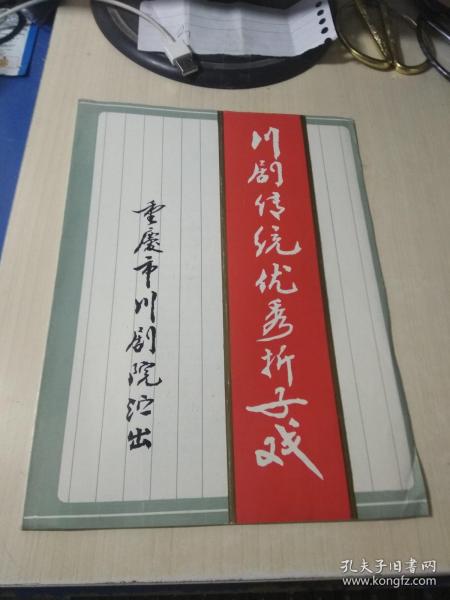 川剧传统优秀折子戏
重慶市川剧院演出
孔夫子旧书网
www.kongfz.com